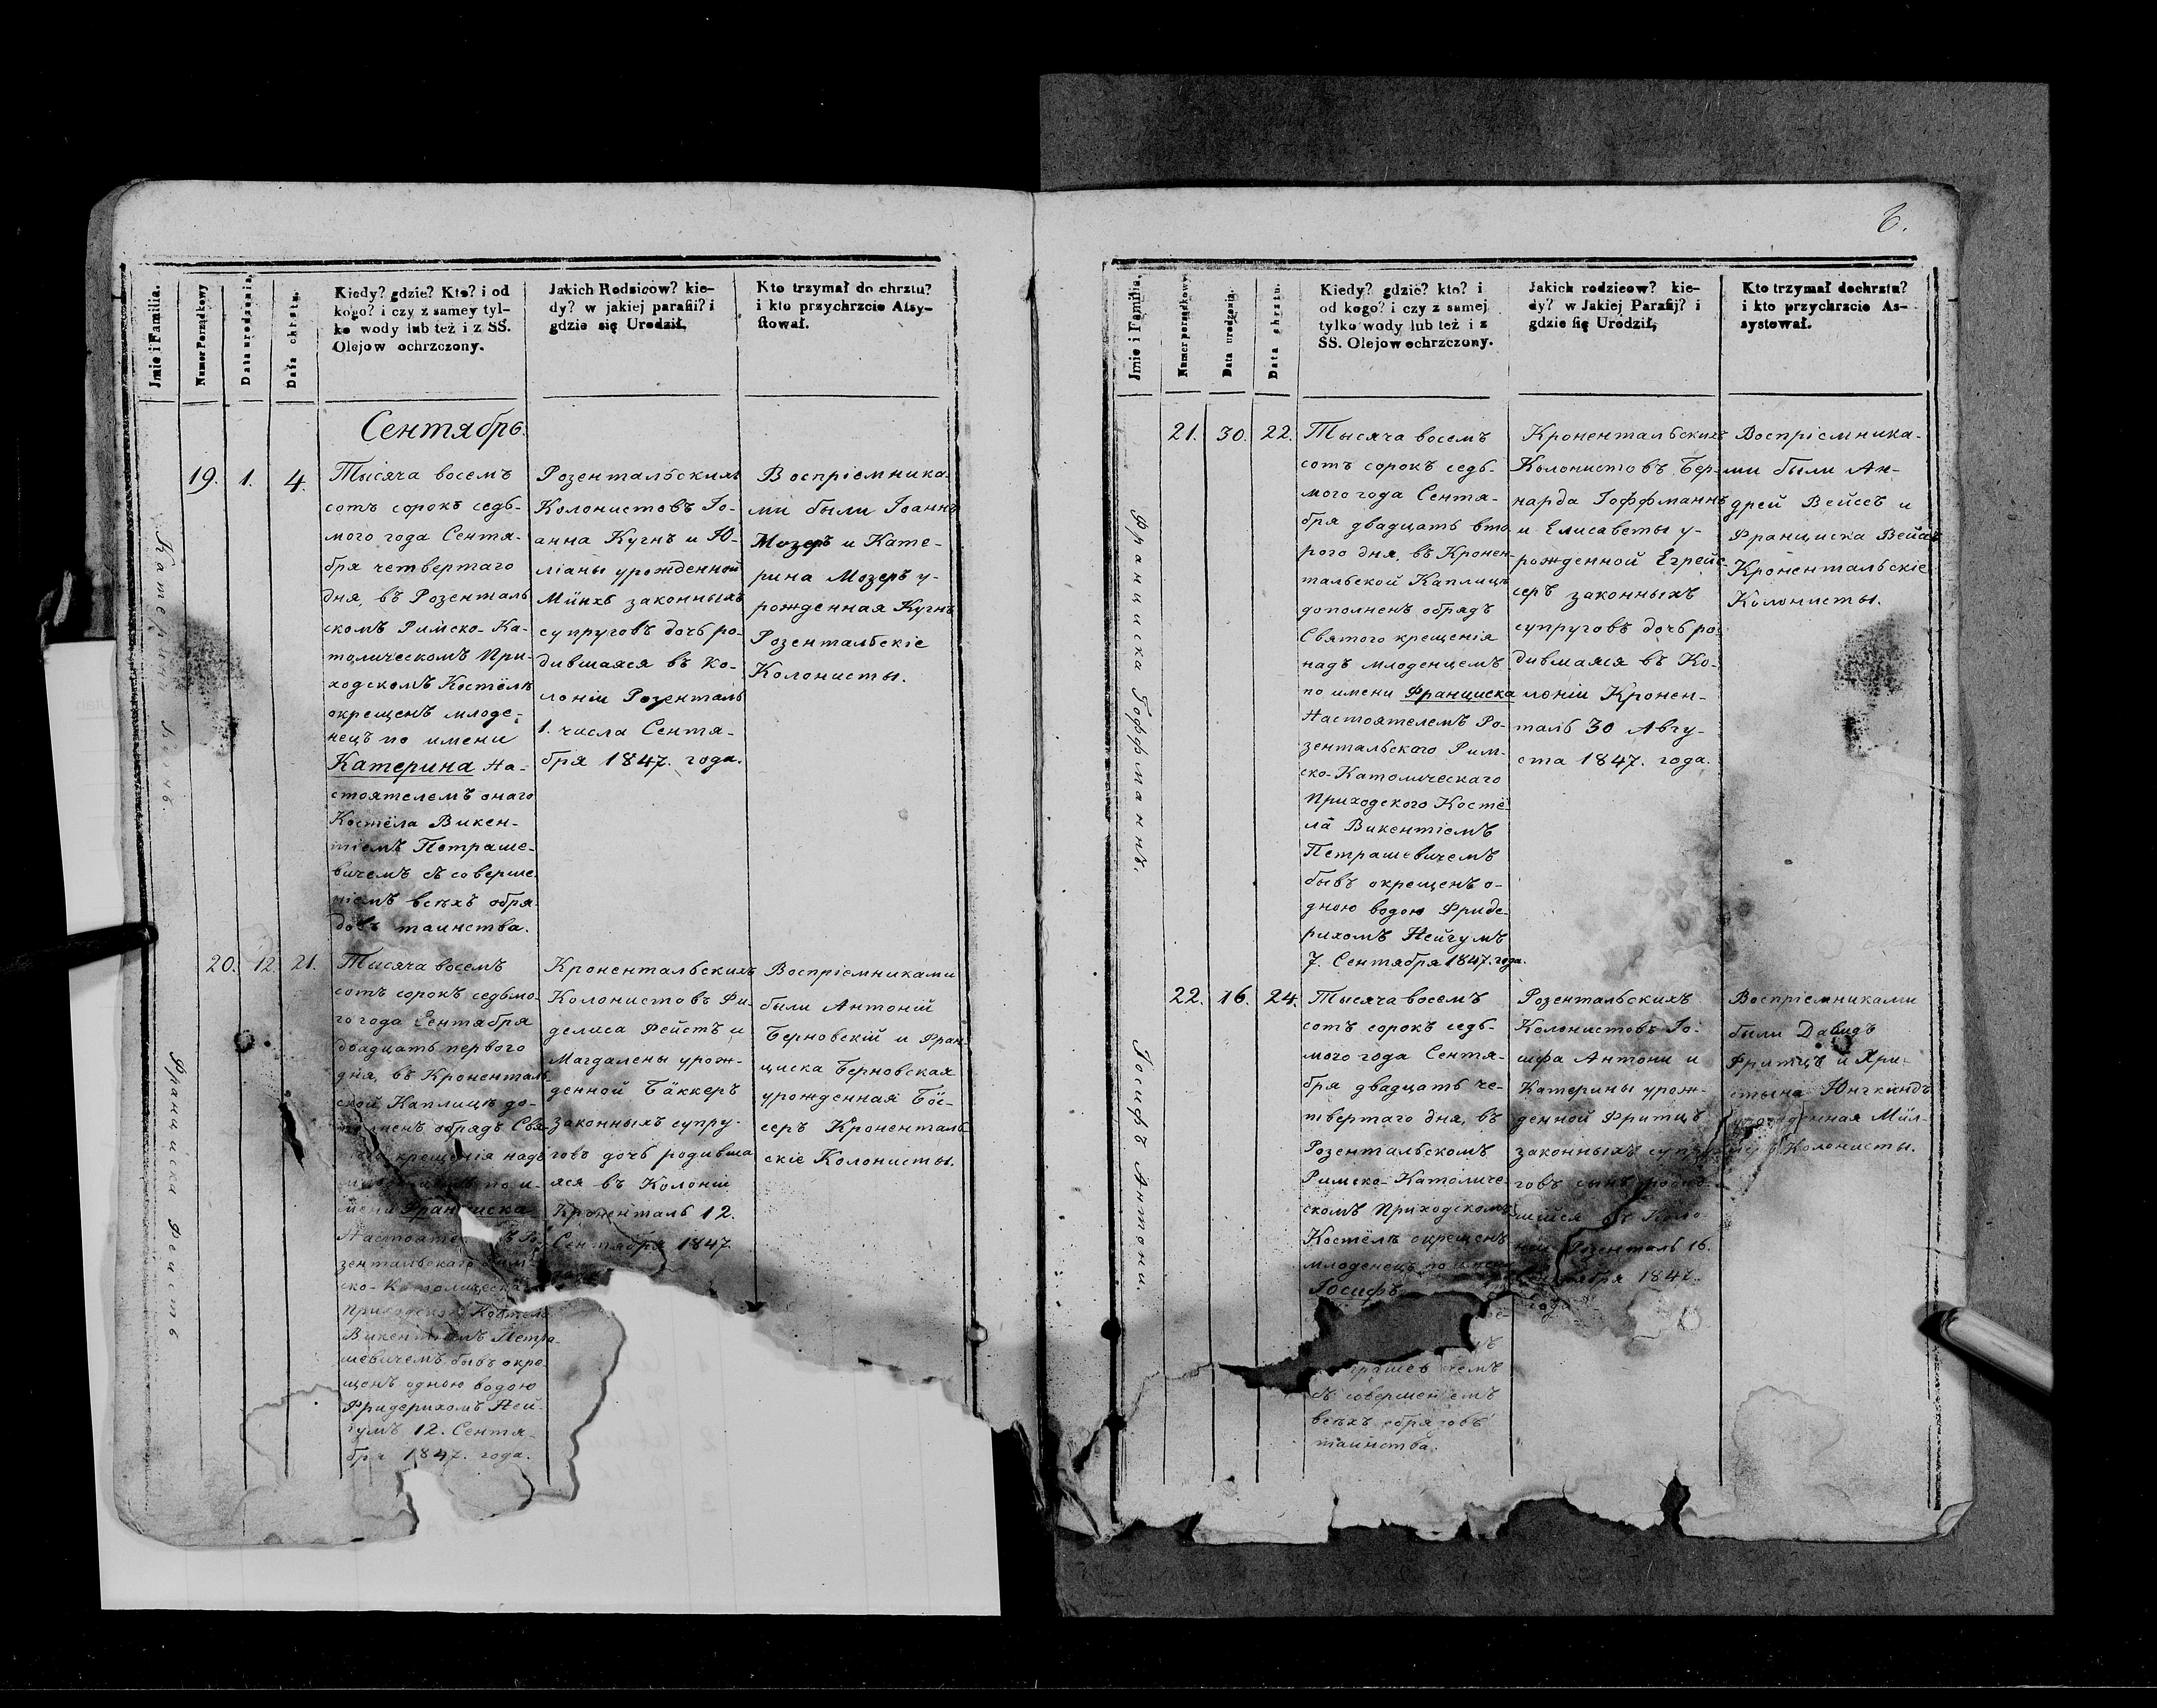 6.
Jmie i Familia.
Numer Porządkowy
Data urodzenia.
Data chrztu.
Kiedy? gdzie? Kto? i od
kogo? i czy z samey tyl-
ko wody lub też i z SS.
Olejow ochrzczony.
Jakich Rodsicow? kie-
dy? w jakiej parafii? i
gdzie się Urodził,
Kto trzymał do chrztu?
i kto przychrzcie Assy-
stował.
Сентябрь.
19.
1.
4.
Тысяча восемъ
сотъ сорокъ седь-
мого года Сентя-
бря четвертаго
дня, въ Розенталь
скомъ Римско-Ка-
толическомъ При-
ходскомъ Костёлѣ
окрещенъ младе-
нецъ по имени
Катерина На-
стоятелемъ онаго
Костёла Викен-
тіемъ Петраше-
вичемъ съ соверше-
ніемъ всѣхъ обря-
довъ таинства.
Розентальскихъ
Колонистовъ Іо-
анна Кугнъ и Ю-
ліаны урожденной
Мüнхъ законныхъ
супруговъ дочь ро-
дившаяся въ Ко-
лоніи Розенталь
1. числа Сентя-
бря 1847. года.
Воспріемника-
ми были Іоаннъ
Мозеръ и Кате-
рина Мозеръ у-
рожденная Кугнъ
Розентальскіе
Колонисты.
20.
12.
21.
Франциска Фейстъ
Тысяча восемъ
сотъ сорокъ седьмо-
го года Сентября
двадцать перваго
дня, въ Кроненталь-
ской Каплицѣ до-
полненъ обрядъ Свя-
крещенія надъ
по и-
мени Франциска
Настояте
зентальскаго Рим-
ско-Католическа
Приходскаго Костёла
Викентіемъ Петра-
шевичемъ бывъ окре-
щенъ одною водою
Фридерихомъ Ней-
гумъ 12. Сентя-
бря 1847. года.
Кронентальскихъ
Колонистовъ Фи-
делиса Фейстъ и
Магдалены урож-
денной Бäккеръ
законныхъ супру-
говъ дочь родивша
яся въ Колоніи
Кроненталь 12.
Сентября 1847
Воспріемниками
были Антоній
Берновскій и Фран-
циска Берновская
урожденная Бöс-
серъ Кроненталь
скіе Колонисты.
Jmie i Familia.
Numer porządkowy.
Data urodzenia.
Data chrztu.
Kiedy? gdzie? kto? i
od kogo? i czy z samej
tylko wody lub też i z
SS. Olejow ochrzczony.
Jakich rodzicow? kie-
dy? w Jakiej Parafij? i
gdzie się Urodził,
Kto trzymał dochrztu?
i kto przychrzcie As-
systował.
Франциска Гоффманнъ.
21.
30.
22.
Тысяча восемъ
сотъ сорокъ седь-
мого года Сентя-
бря двадцать вто
рого дня, въ Кронен-
тальской Каплицѣ
дополненъ обрядъ
Святого крещенія
надъ младенцемъ
по имени Франциска
Настоятелемъ Ро-
зентальскаго Рим-
ско-Католическаго
Приходского Костё
ла Викентіемъ
Петрашевичемъ
бывъ окрещенъ о-
дною водою Фриде-
рихомъ Нейгумъ
7. Сентября 1847. года.
Кронентальскихъ
Колонистовъ Бер-
нарда Гоффманнъ
и Елисаветы у-
рожденной Егрейс-
серъ законныхъ
супруговъ дочь ро-
дившаяся въ Ко-
лоніи Кронен-
таль 30 Авгу-
ста 1847. года.
Воспріемника-
ми были Ан-
дрей Вейсъ и
Франциска Вейсъ
Кронентальскіе
Колонисты.
Іосифъ Антони.
22.
16.
24.
Тысяча восемъ
сотъ сорокъ седь-
мого года Сентя-
бря двадцать че-
твертаго дня, въ
Розентальскомъ
Римско-Католиче-
скомъ Приходскомъ
Костёлѣ окрещенъ
младенецъ по имени
Іосифъ
съ совершеніемъ
всѣхъ обрядовъ
таинства.
Розентальскихъ
Колонистовъ Іо-
сифа Антони и
Катерины урож-
денной Фритцъ
законныхъ супру
говъ сынъ родив
шійся въ Коло-
ніи Розенталь 16.
Сентября 1847.
года
Воспріемниками
были Давидъ
Фритцъ и Хри-
стына Юнгкиндъ
урожденная Мüл-
Колонисты.